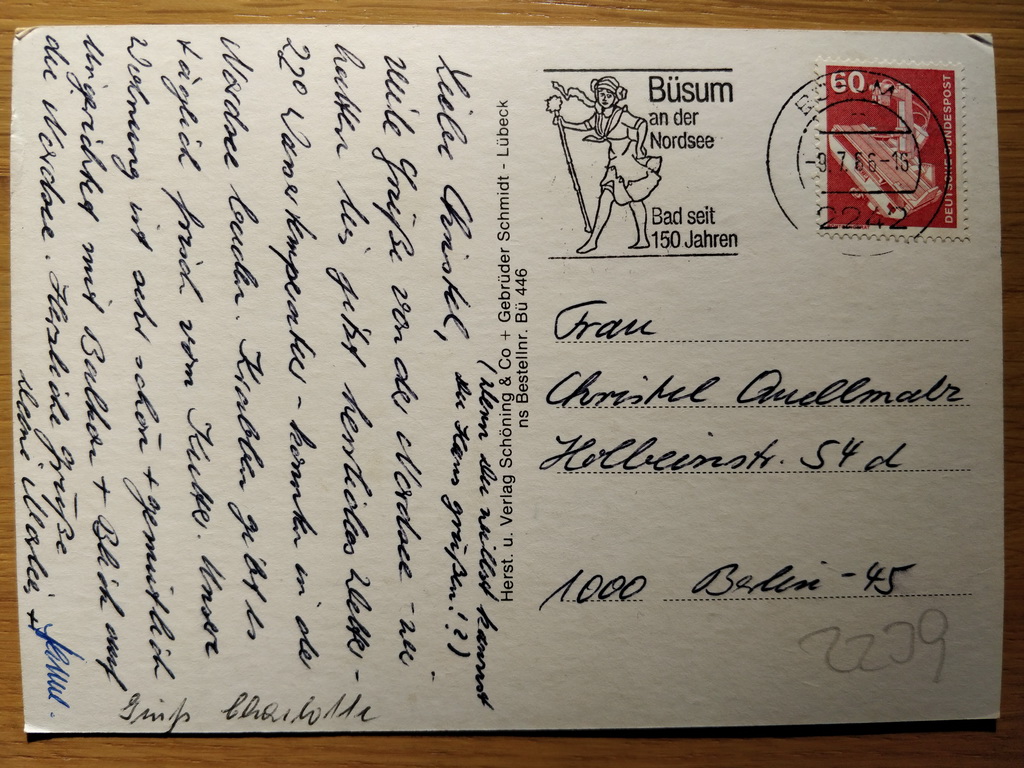 Liebe Christel,
(denn du willst kannst
du Hans grüßen!?)
viele Grüße von der Nordsee - wir
hatten bis jetzt herrliches Wetter -
22° Wassertemperatur - konnten in der
Nordsee baden. Krabben gibt es
täglich frisch vom Kutter. Unsere
Wohnung ist sehr schön + gemütlich
eingerichtet mit Balkon + Blick auf
die Nordsee. Herzliche Grüße
deine +
Gruß Charlotte
Herst. u. Verlag Schöning & Co + Gebrüder Schmidt - Lübeck
ns Bestellnr. Bü 446
Büsum
an der
Nordsee
Bad seit
150 Jahren
-9.7.86-16
2242
60
DEUTSCHE BUNDESPOST
Frau
Christel Quellmalz
Holbeinstr. 54 d
1000 Berlin-45
2239